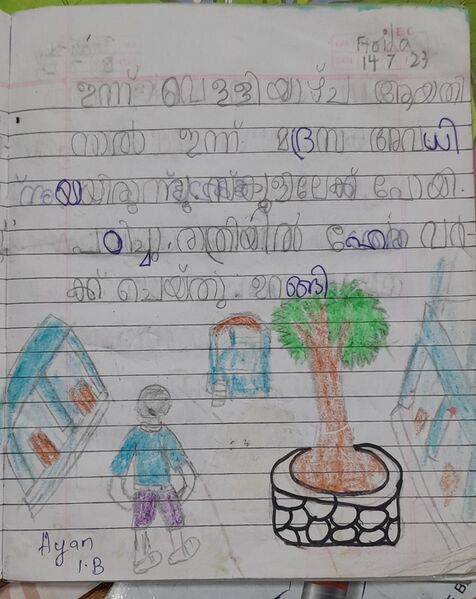 Friday
14 7 23
ഇന്ന് വെള്ളിയാഴ്ച ആയതി
നാൽ ഇന്ന് മദ്രസ അവധി
യായിരുന്നു സ്കൂളിലേക്ക് പോയി.
പഠിച്ചു. രാത്രിയിൽ ഹോം വർ-
ക്ക് ചെയ്തു. ഉറങ്ങി
Ayan
1.B